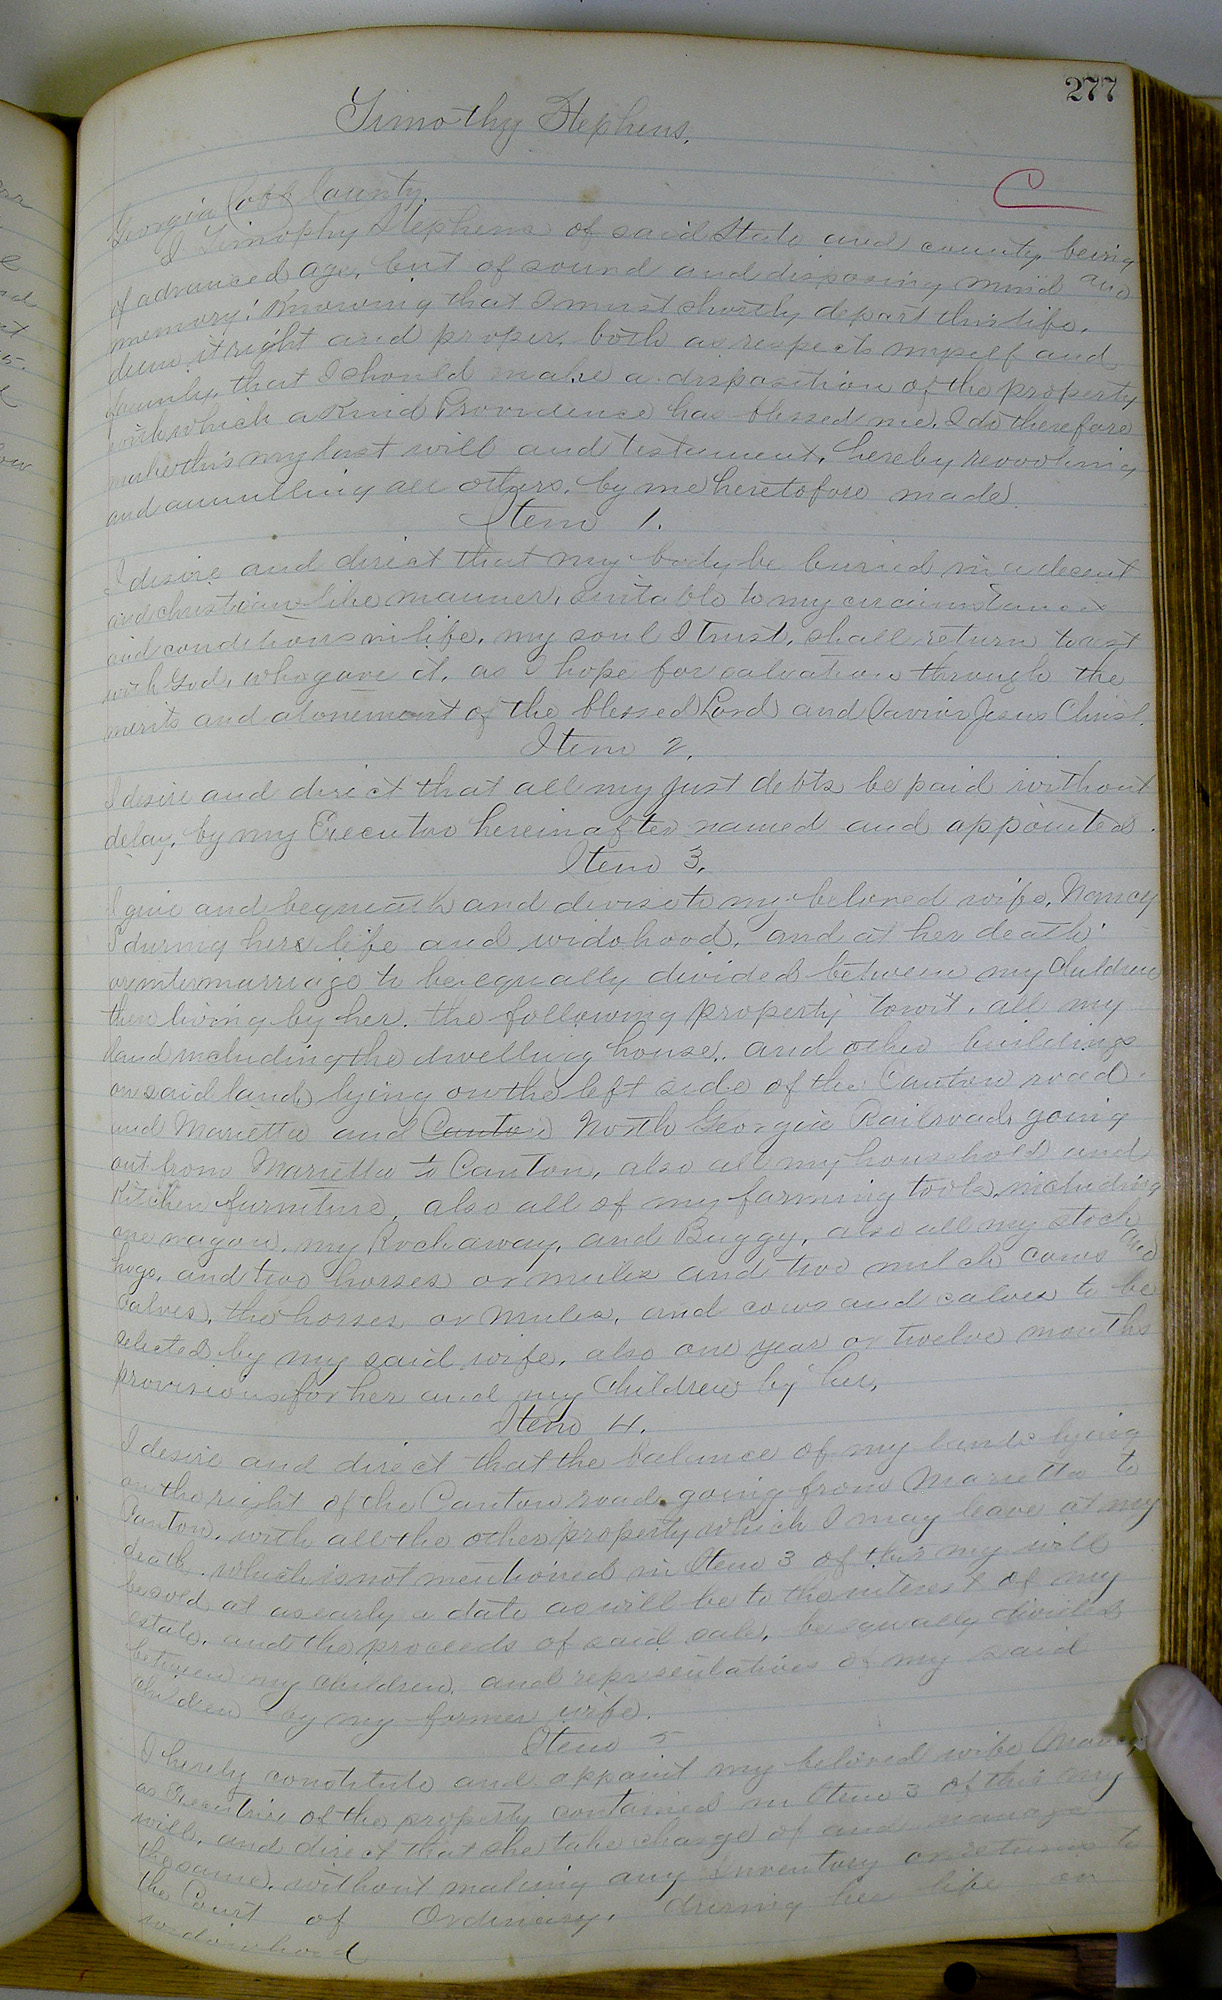 277
Timothy Stephens.
C
Georgia Cobb County.
I Timothy Stephens of said State and county, being
of advanced age, but of sound and disposing mind and
memory, Knowing that I must shortly depart this life,
deem it right and proper, both as respects myself and
family, that I should make a disposition of the property
with which a kind Providence has blessed me, I do therefore
make this my last will and testament, hereby revoking
and annulling all others, by me heretofore made
Item 1.
I desire and direct that my body be buried in a decent
and christian-like manner, suitable to my circumstances
and conditions in life, my soul I trust, shall return to rest
with God, who gave it, as I hope for salvation through the
merits and atonement of the blessed Lord and Savior Jesus Christ.
Item 2.
I desire and direct that all my just debts be paid without
delay, by my Executor hereinafter named and appointed.
Item 3.
I give and bequeath and devise to my beloved wife, Nancy
S during her life and widohood, and at her death
or intermarriage to be equally divided between my children
then living by her, the following property towit, all my
land including the dwelling house, and other buildings
on said land, lying on the left side of the Canton road
and Marietta and Canton North Georgia Railroad, going
out from Marietta to Canton, also all my household and
Kitchen furniture, also all of my farming tools, including
one wagon, my Rockaway, and Buggy, also all my stock
hogs, and two horses or mules and two milch cows and
calves, the horses or mules, and cows and calves to be
selected by my said wife, also one year or twelve months
provisions for her and my children by her,
Item 4.
I desire and direct that the balance of my lands lying
on the right of the Canton road going from Marietta to
Canton, with all the other property which I may leave at my
death, which is not mentioned in Item 3 of this my will
be sold at as early a date as will be to the interest of my
estate, and the proceeds of said sale, be equally divided
between my children, and representatives of my said
children by my former wife.
Item 5
I hereby constitute and appoint my beloved wife Nancy
as Executrix of the property contained in Item 3 of this my
will, and direct that she take charge of and manage
the same, without making any Inventory or returns to
the Court of Ordinary, during her life or
widowhood